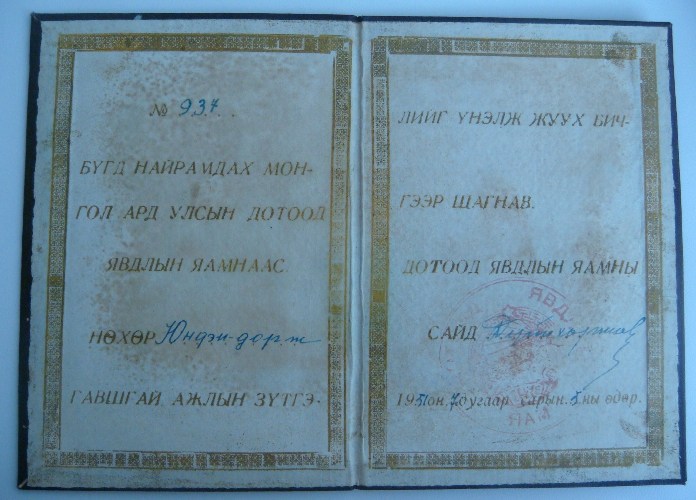 № 937.
БҮГД НАЙРАМДАХ МОН-
ГОЛ АРД УЛСЫН ДОТООД
ЯВДЛЫН ЯАМНААС
НӨХӨР Юндэн-дорж
ГАВШГАЙ АЖЛЫН ЗҮТГЭ-
ЛИЙГ ҮНЭЛЖ ЖУУХ БИЧ-
ГЭЭР ЩАГНАВ.
ДОТООД ЯВДЛЫН ЯАМНЫ
САЙД
1951он 7дугаар сарын 5ны өдөр.